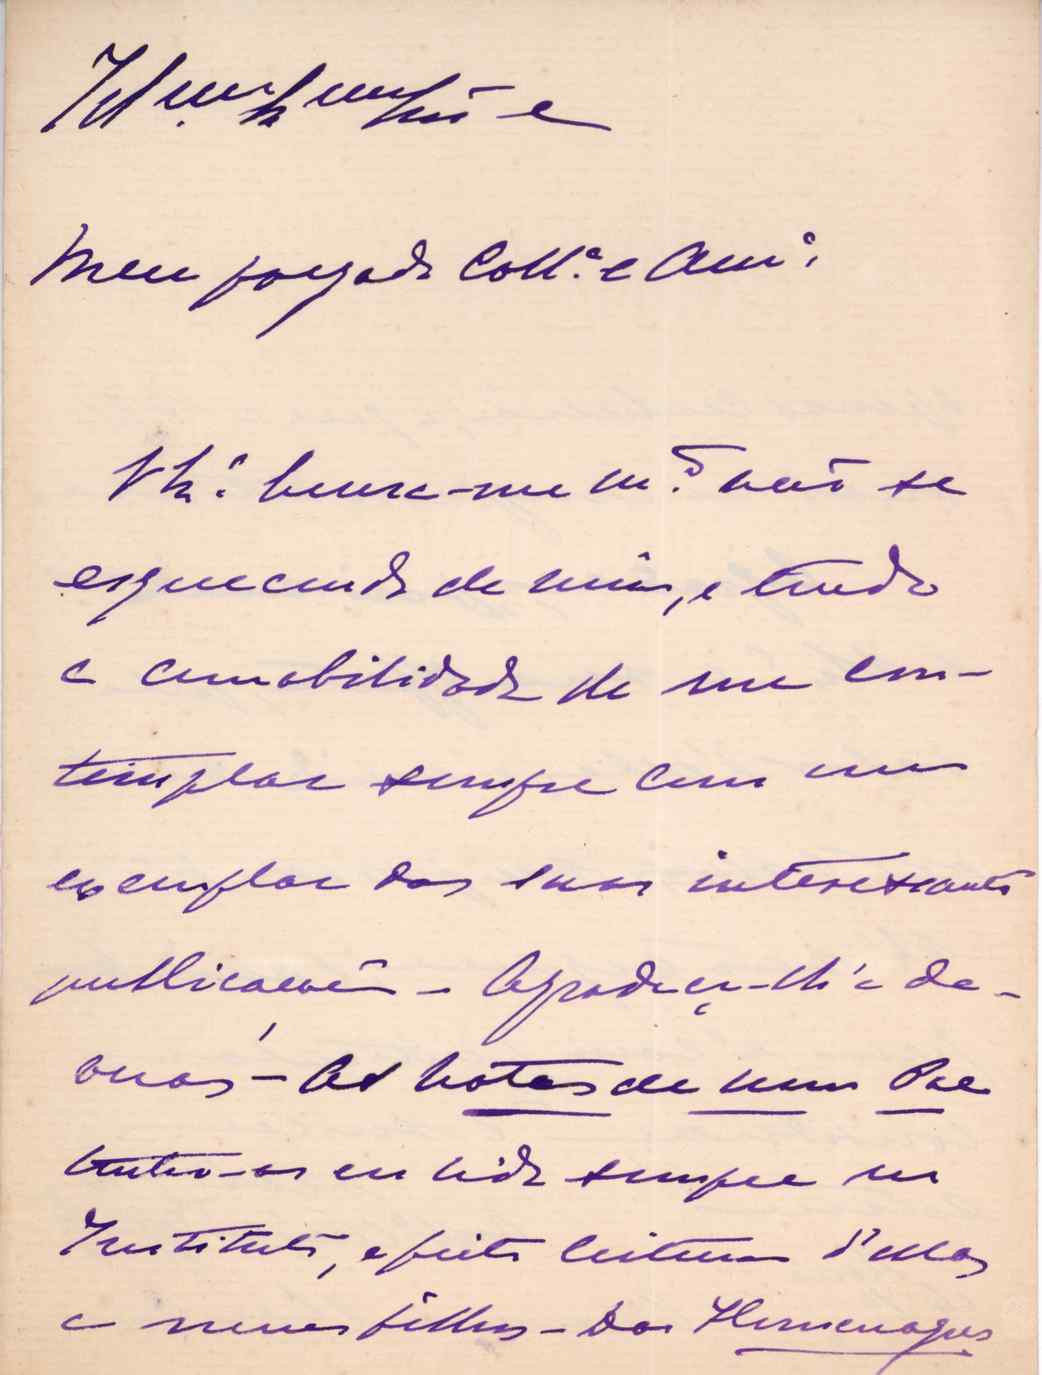 Meu presado Coll.ª e Am.º
V. Ex.ª honra-me m.to não se
esquecendo de mim, e tendo
a amabilidade de me con-
templar sempre com um
exemplar das suas interessantes
publicações - Agradeço-lh'a de-
veras - As Notas de um Pae
tenho-as eu lido sempre no
Instituto, e feito leitura d'ellas
a meus filhos - Das Homenagens